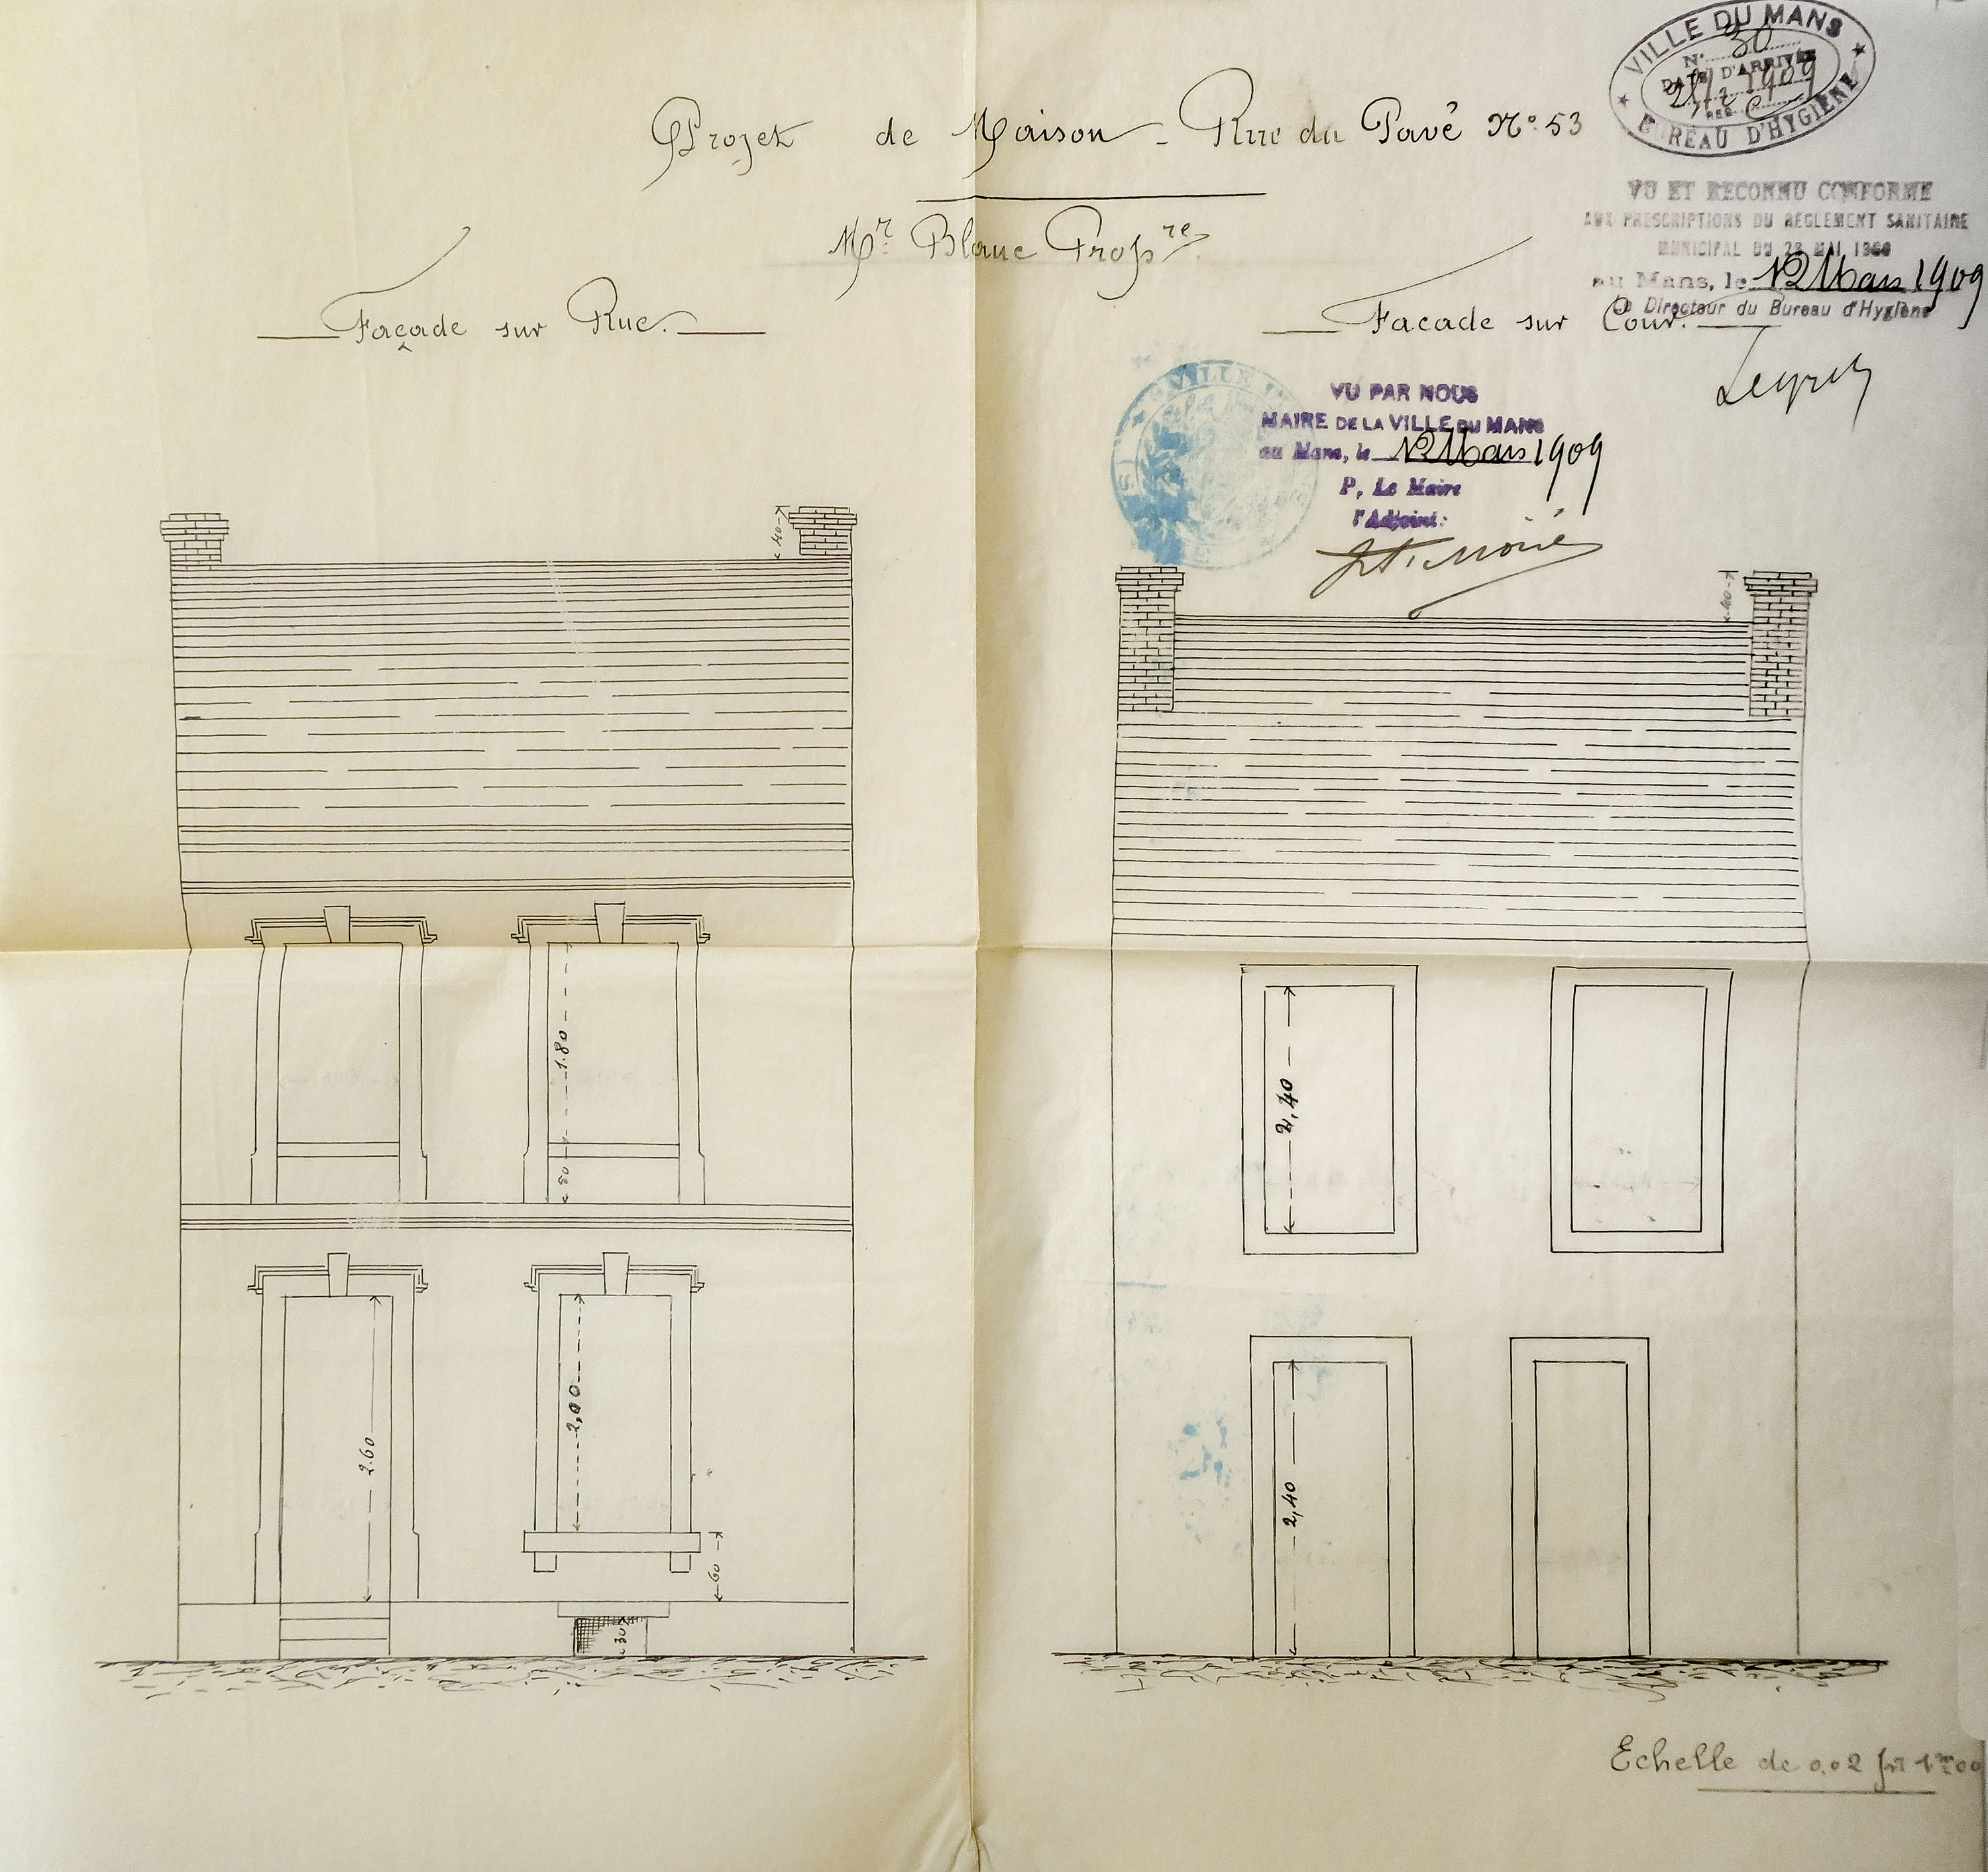 VILLE DU MANS
N° 30
DATE D'ARRIVÉE
1909
REG.
BUREAU D'HYGIÈNE
Projet de Maison - Rue du Pavé N° 53
VU ET RECONNU CONFORME
AUX PRESCRIPTIONS DU REGLEMENT SANITAIRE
MUNICIPAL DU 28 MAI
au Mans, le 12 Mars 1909
Le Directeur du Bureau d'Hygiène
Mr. Blanc Propre
Façade sur Rue.
Facade sur Cour.
VU PAR NOUS
MAIRE DE LA VILLE DU MANS
au Mans, le 12 Mars 1909
P, Le Maire
l'Adjoint:
40
40
1.80
50
2,40
2.60
2,00
60
30
2,40
Echelle de 0.02 pr 1m00